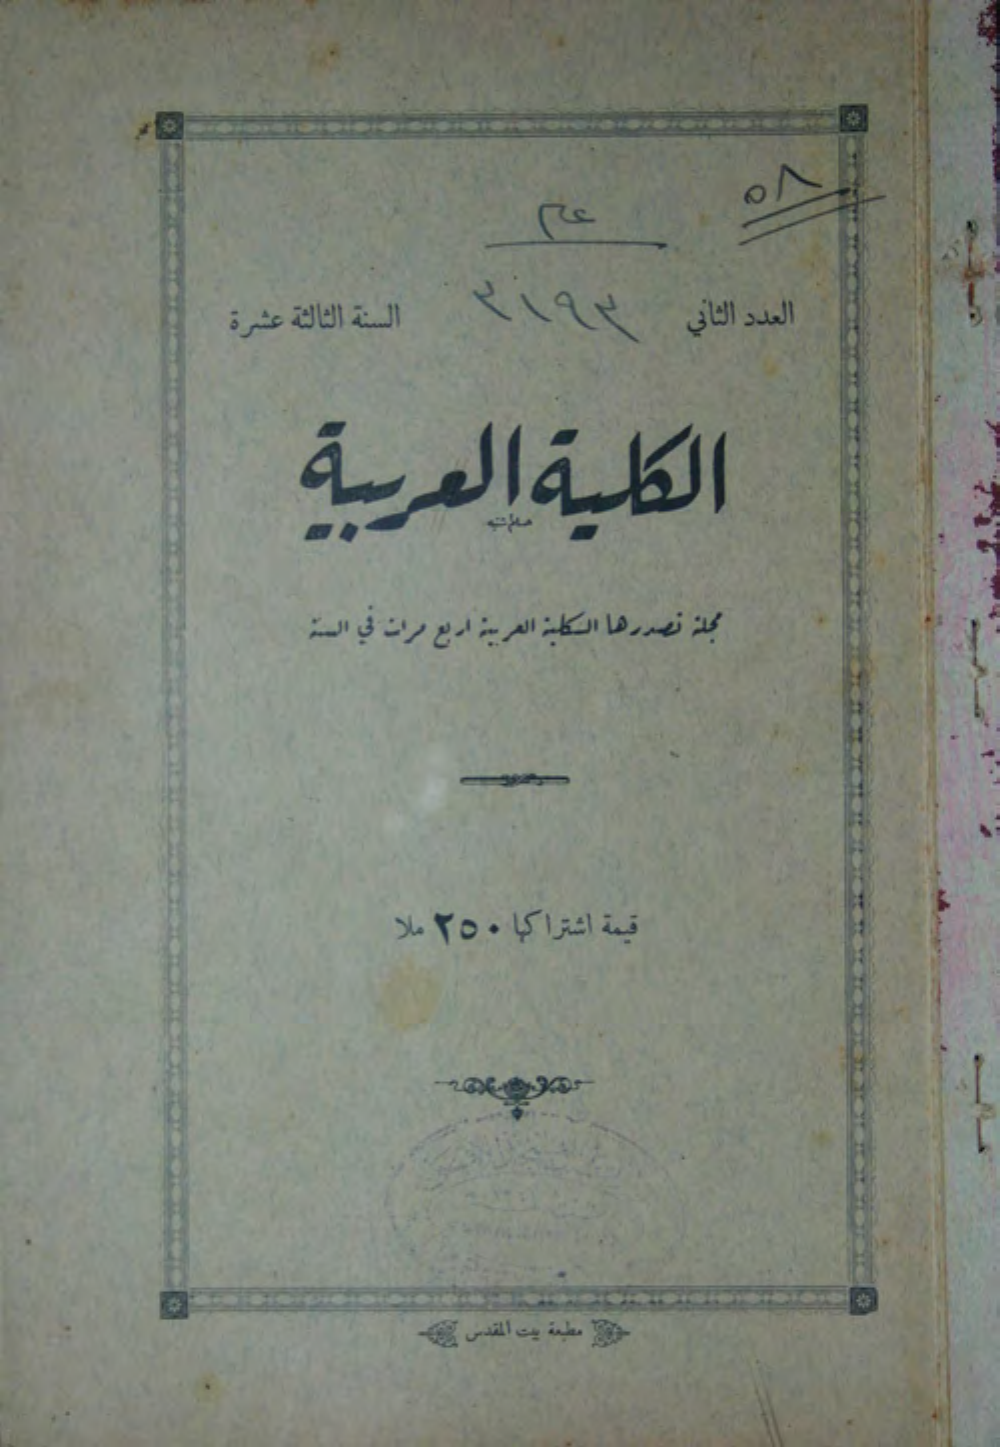 ٥٨
عم
العدد الثاني ٣١٩٣ السنة الثالثة عشرة
الكلية العربية
مجلة تصدرها الكلية العربية اربع مرات في السنة
قيمة اشتراكها ٢٥٠ ملا
مطبعة بيت المقدس